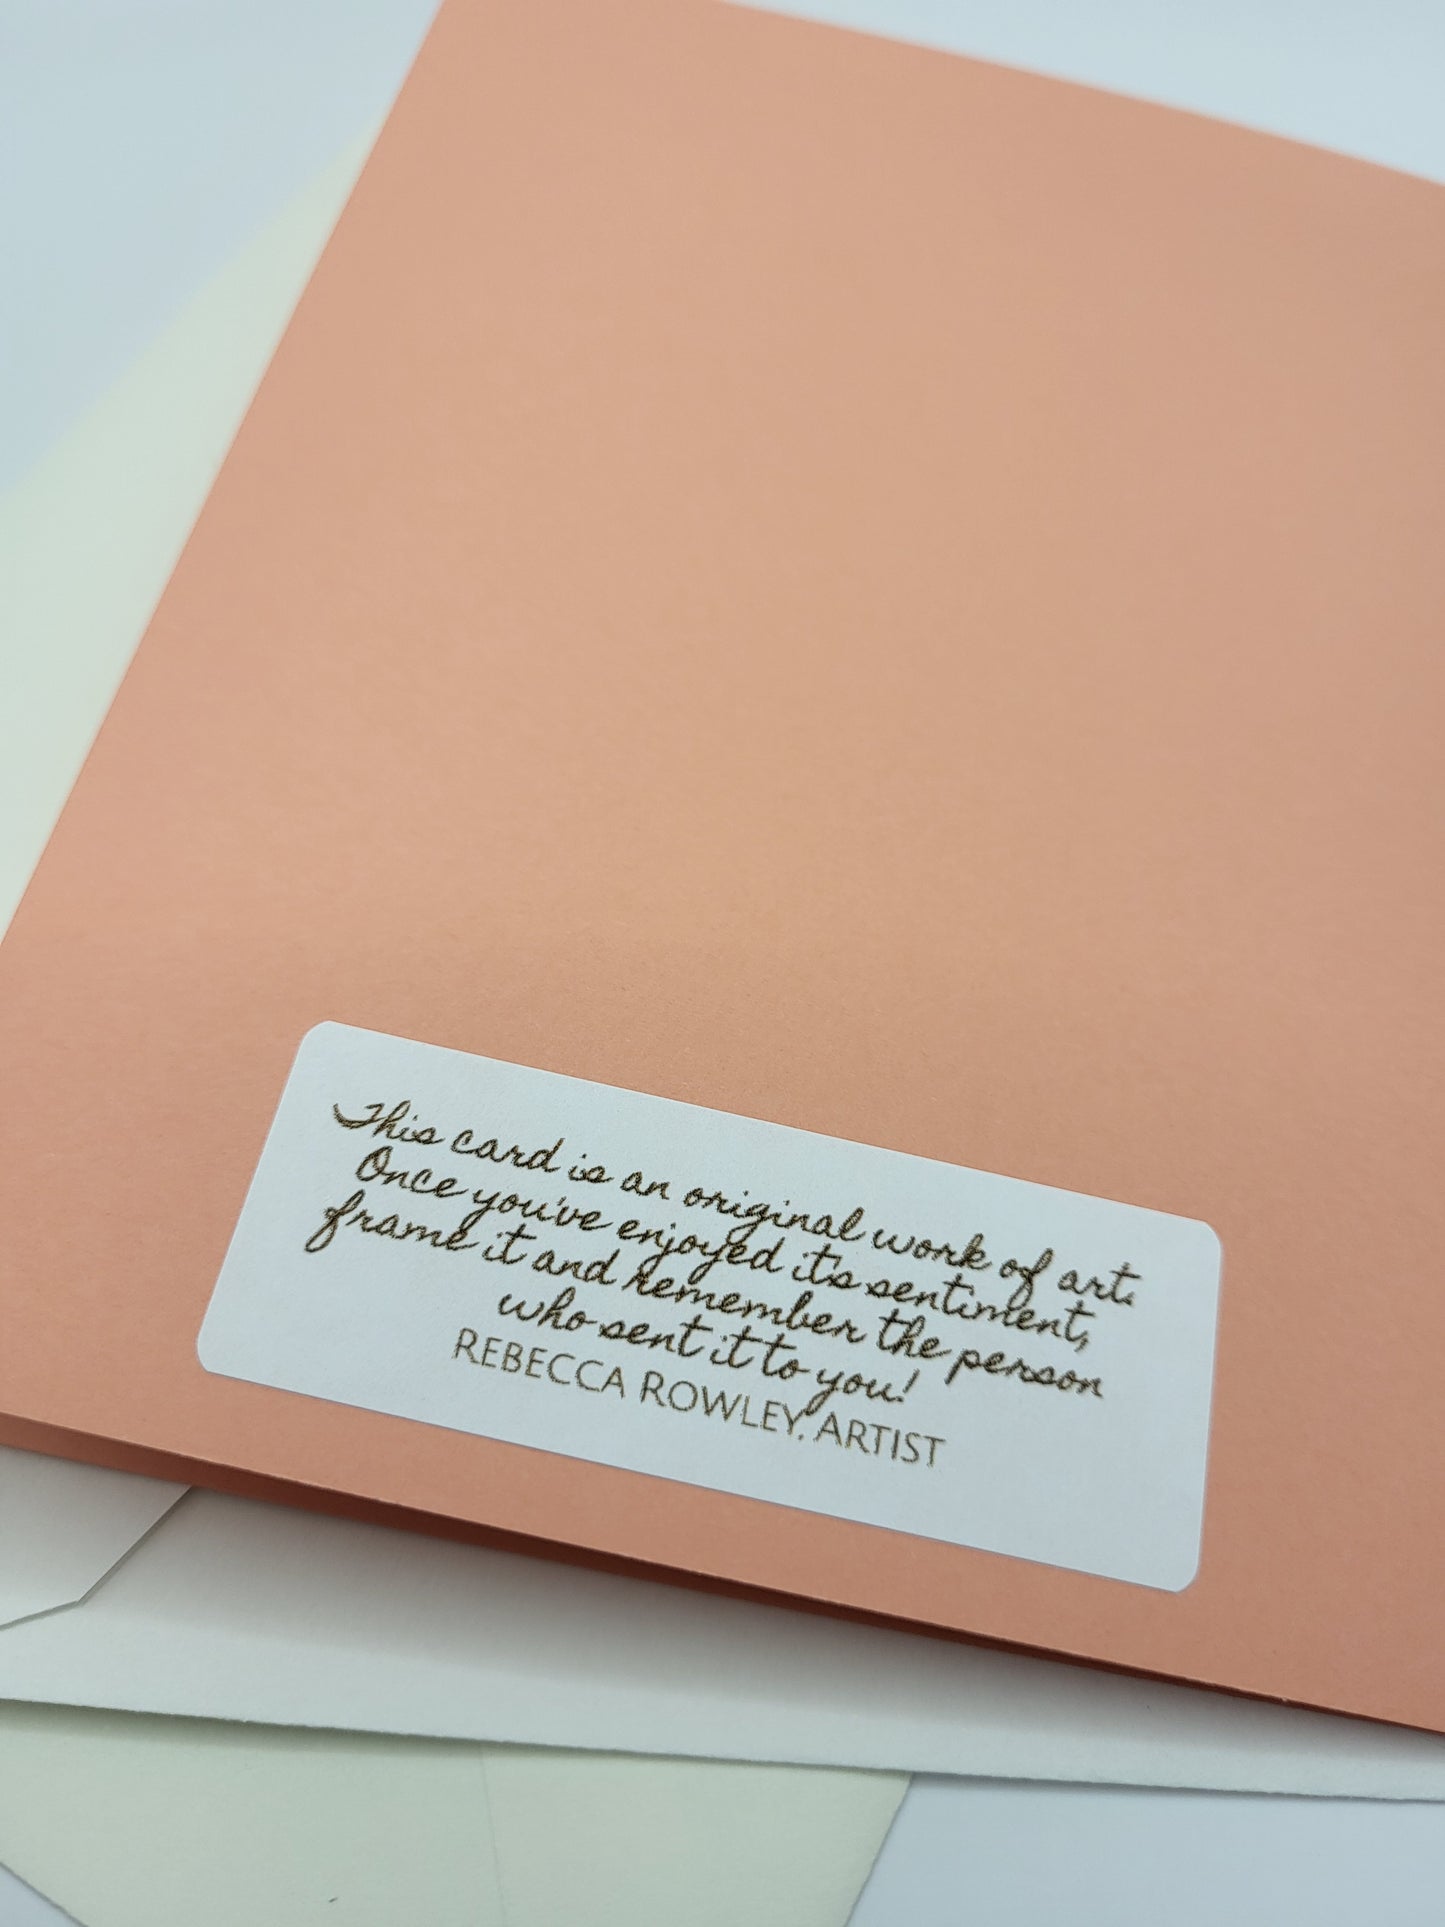 This card is an original work of art.
Once you've enjoyed it's sentiment,
frame it and remember the person
who sent it to you!
REBECCA ROWLEY, ARTIST